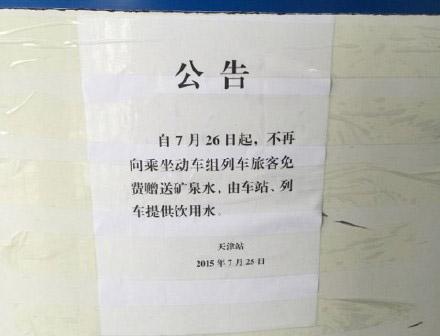 公告
自7月26日起，不再
向乘坐动车组列车旅客免
费赠送矿泉水，由车站、列
车提供饮用水。
天津站
2015年7月25日